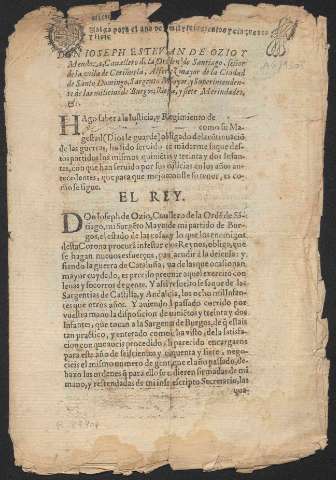 Valga para el año de mil y seiscientos y cinquenta
y siete
DON IOSEPH ESTEVAN DE OZIO Y
Mendoza, Cavallero de la Orden de Santiago, señor
de la villa de Alferez mayor de la Ciudad
de Santo Domingo, Sargento Mayor, y Superintendente
de las milicias de Burgos, Rioja, y siete Merindades,
&c.
HAgo saber a la Iusticia, y Regimiento de
como su Magestad
(Dios le guarde) obligado de la continuació
de las guerras, ha sido servido de mádarme saque destos
partidos los mismos quiniétos y treinta y dos Infantes,
con que han servido por sus milicias en los años antecedentes,
que para que mejor conste su tenor, es como
se sigue.
EL REY.
DOn Ioseph de Ozio, Cavallero de la Ordé de Sátiago,
mi Sargéto Mayor de mi partido de Burgos,
el estado de las cosas, y lo que los enemigos
desta Corona procurá infestar estos Reynos, obliga, que
se hagan nuevos esfuerços, para acudir a la defensa: y
siendo la guerra de Cataluña, vna de las que ocasionan,
mayor cuydado, es preciso prevenir aquel exercito con
levas y socorros de gente. Y assi resuelto se saque de las
Sargentias de Castilla, y Andalucia, los ocho mil Infantes
que otros años. Y aviendo el passado corrido por
vuestra mano la disposicion de quiniétos y treinta y dos
Infantes, que tocan a la Sargentia de Burgos, de q̃ estais
tan practico, y enterado como ha visto, de la satisfacion
con que aveis procedido, ha parecido encargaros
para este año de seiscientos y cinquenta y siete, negocieis
el mismo numero de gente, que el año passado, debaxo
las ordenes q̃ para ello se os dieren firmadas de mi
mano, y refrendadas de mi infrascripto Secretario, las
qua-